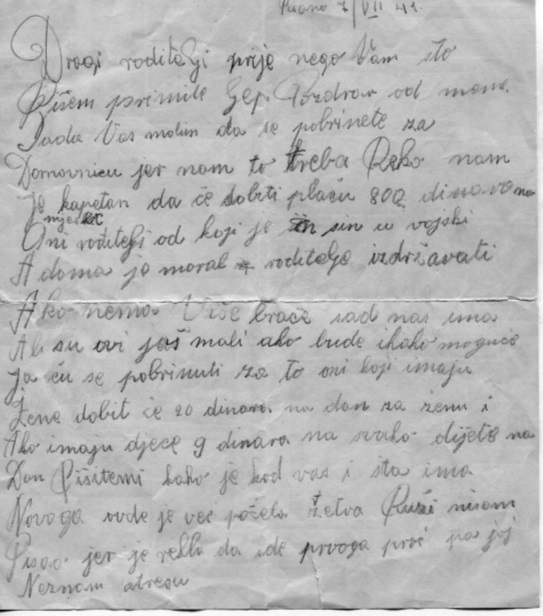 7/VII 41.
Dragi roditelji prije nego Vam što
Pišem primite ljep Pozdrav od mene.
Sada Vas molim da se pobrinete za
Domovnicu jer nam to treba Reko nam
Je kapetan da će dobiti plaću 800 dinara na
mjesec
Oni roditelji od koji je sin u vojski
A doma je moral roditelje izdržavati
Ako nema Više braće sad nas ima
Ali su ovi još mali ako bude ikako moguće
Ja ću se pobrinuti za to oni koji imaju
Žene dobit će 20 dinara na dan za ženu i
Ako imaju djece 9 dinara na svako dijete na
Dan Pišitemi kako je kod vas i šta ima
Novoga ovde je vec požela Žetva Ruži nisam
Pisao jer je rekla da ide prvoga proć pa joj
Neznam adresu